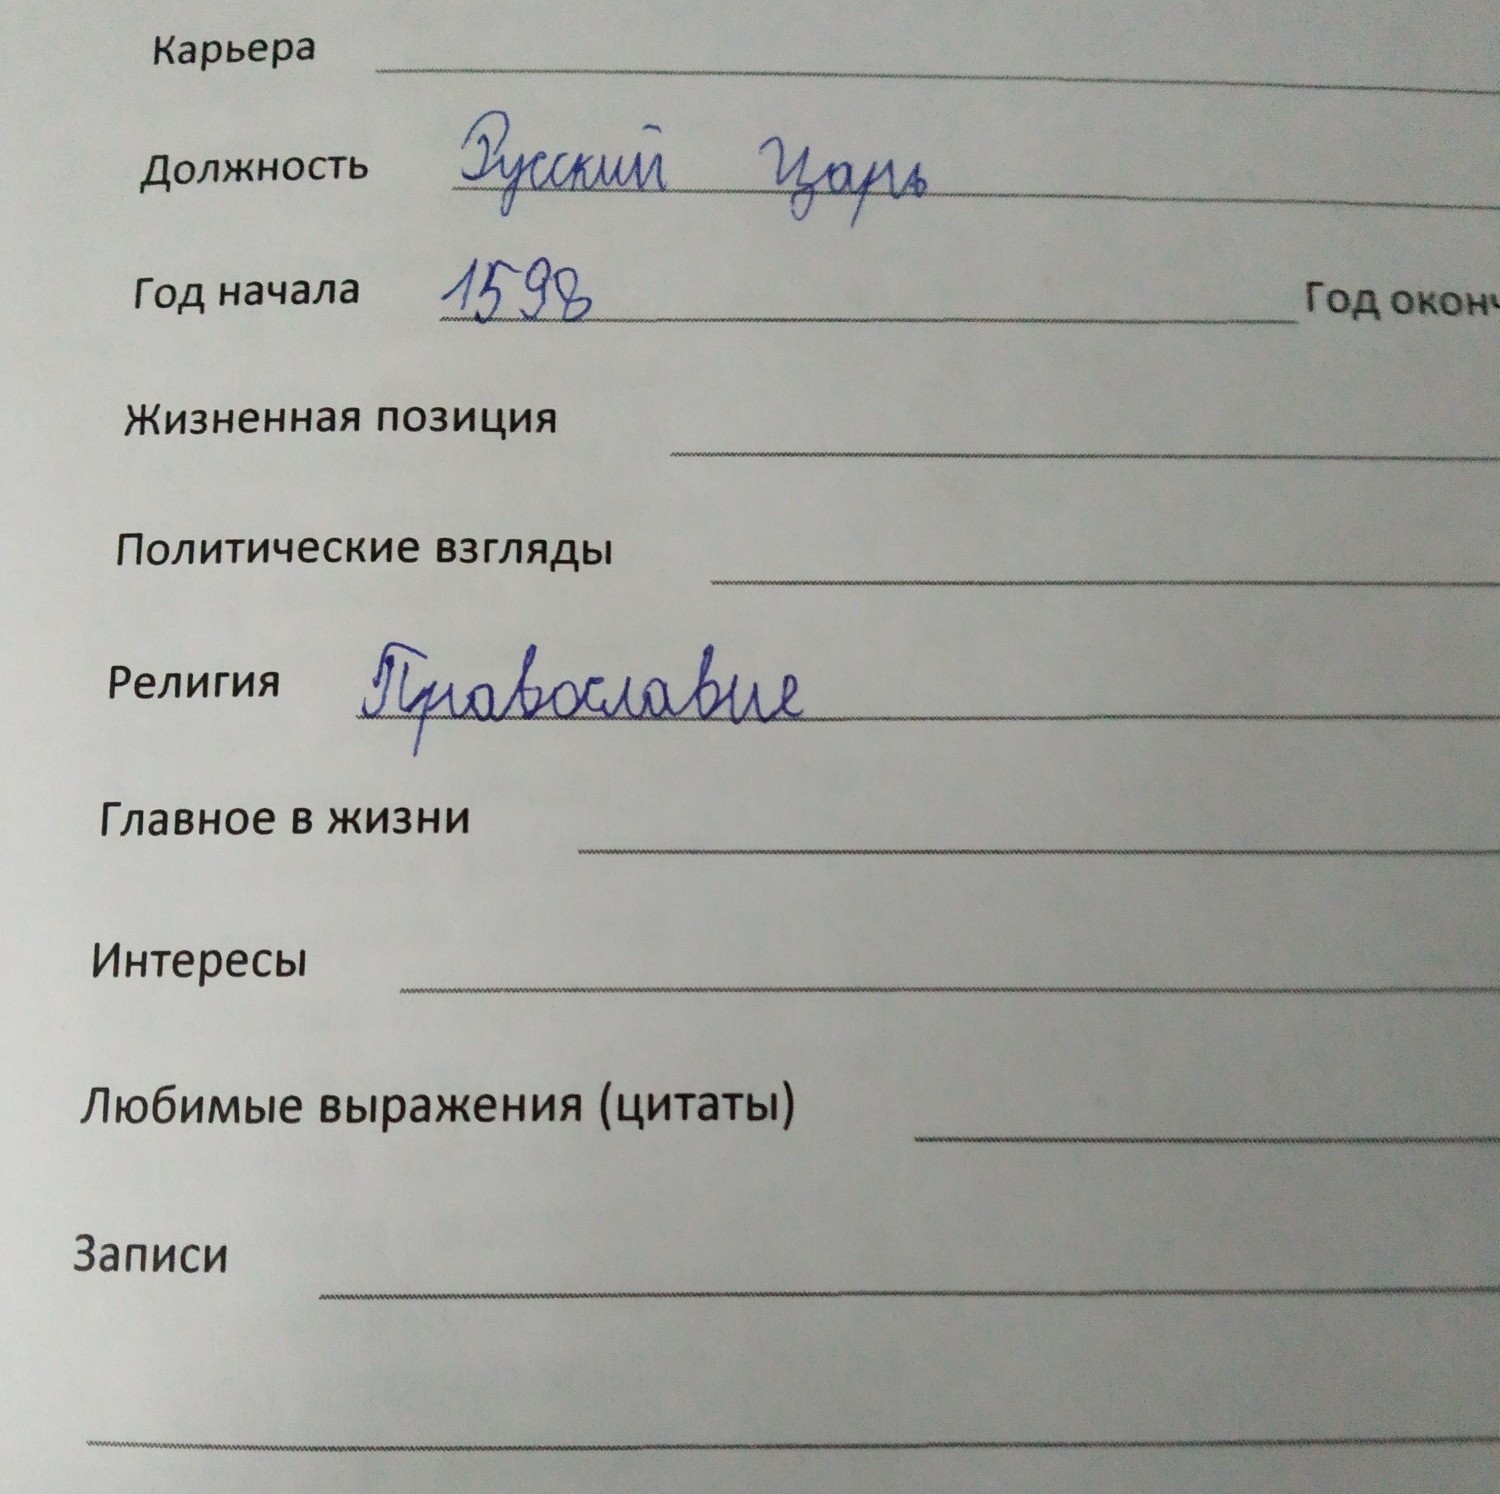 Карьера
Должность Русский Царь
Год начала 1598 Год оконч
Жизненная позиция
Политические взгляды
Религия Православие
Главное в жизни
Интересы
Любимые выражения (цитаты)
Записи